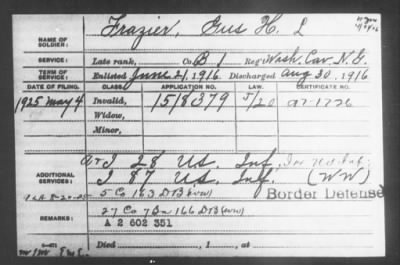 Frazier, Gus H. L
NAME OF SOLDIER:
SERVICE: Late rank, Co. B 1 Reg't Wash. Cav. N. G.
TERM OF SERVICE: Enlisted June 21, 1916. Discharged Aug 30, 1916
DATE OF FILING. CLASS. APPLICATION NO. LAW. CERTIFICATE NO.
1925 May 4 Invalid, 1518379 J/20
Widow,
Minor,
ADDITIONAL SERVICES: I 28 US. Inf.
I 87 US. Inf. (WW)
5 Co 163 DTB (WW) Border Defense
REMARKS: 27 Co 7 Bn 166 DTB (WW)
A 2 602 351
Died , 1 , at